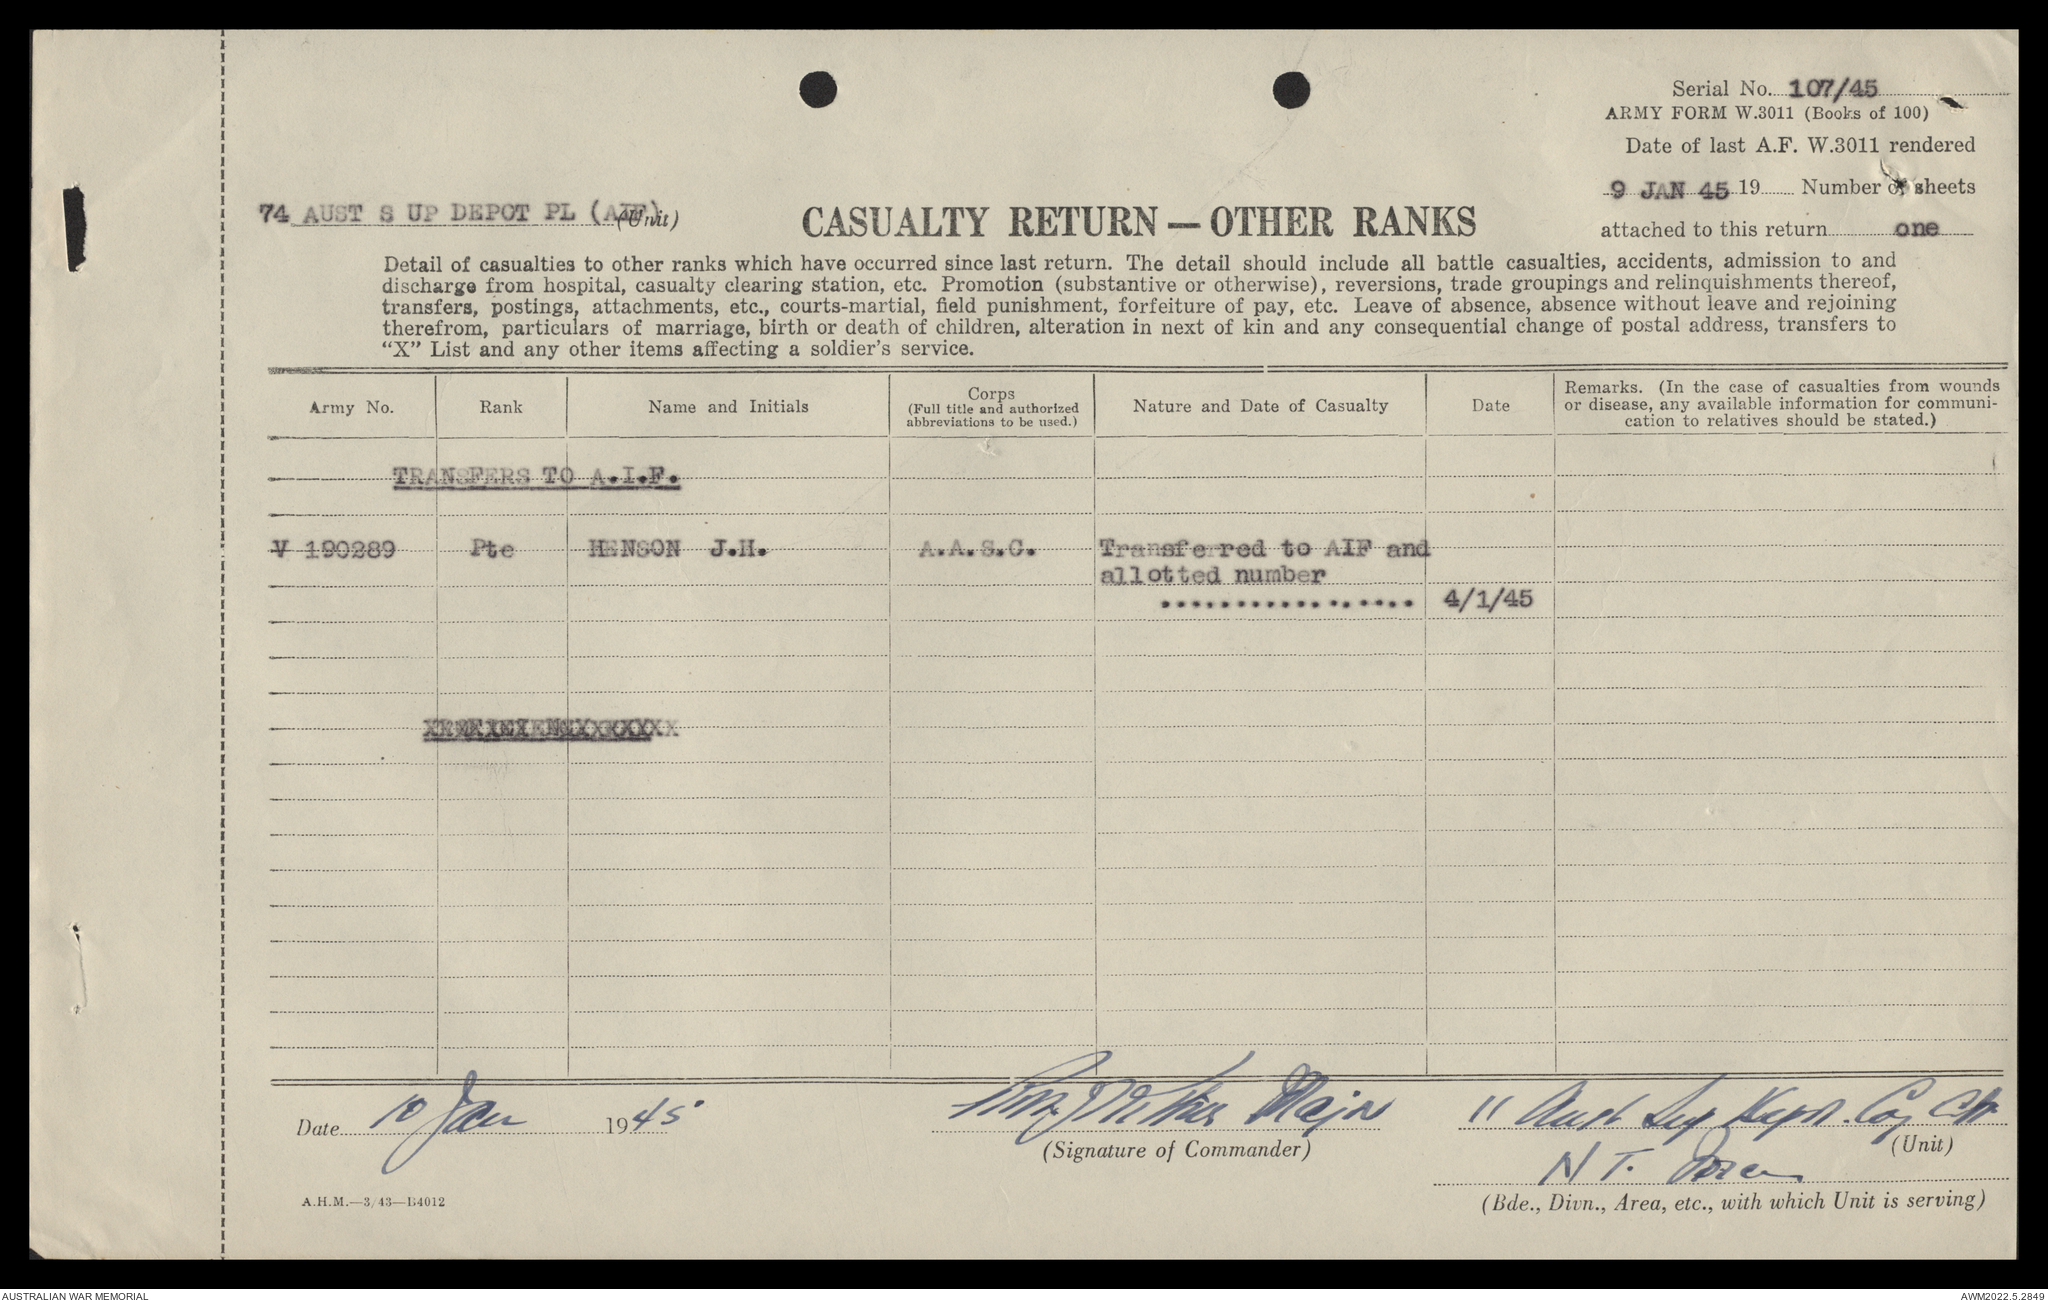 Serial No. 107/45
ARMY FORM W.3011 (Books of 100)
Date of last A.F. W.3011 rendered
9 JAN 45 19 Number of sheets
attached to this return one
74 AUST S UP DEPOT PL (AIF) (Unit)
CASUALTY RETURN — OTHER RANKS
Detail of casualties to other ranks which have occurred since last return. The detail should include all battle casualties, accidents, admission to and
discharge from hospital, casualty clearing station, etc. Promotion (substantive or otherwise), reversions, trade groupings and relinquishments thereof,
transfers, postings, attachments, etc., courts-martial, field punishment, forfeiture of pay, etc. Leave of absence, absence without leave and rejoining
therefrom, particulars of marriage, birth or death of children, alteration in next of kin and any consequential change of postal address, transfers to
"X" List and any other items affecting a soldier's service.
Army No. Rank Name and Initials Corps (Full title and authorized abbreviations to be used.) Nature and Date of Casualty Date Remarks. (In the case of casualties from wounds or disease, any available information for communi-cation to relatives should be stated.)
TRANSFERS TO A.I.F.
V 190289 Pte HENSON J.H. A.A.S.C. Transferred to AIF and
allotted number
................. 4/1/45
Date 10 Jan 1945 Major 11 Aust Sup Coy
(Signature of Commander) (Unit)
N T.
(Bde., Divn., Area, etc., with which Unit is serving)
A.H.M.—3/43—B4012
AUSTRALIAN WAR MEMORIAL AWM2022.5.2849